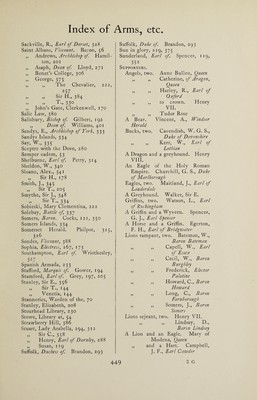 Index of Arms, etc.
Sackville, R., Earl of Dorset, 328
Saint Albans, Viscount. Bacon, 56
„ Andrews, Archbishop of. Hamilton, 202
„ Asaph, Dean of. Lloyd, 271
„ Benet's College, 306
„ George, 375
„ „ The Chevalier, 211, 257
„ „ Sir H., 384
„ „ T., 330
„ John's Gate, Clerkenwell, 170
Salic Law, 380
Salisbury, Bishop of. Gilbert, 192
„ Dean of. Williams, 400
Sandys, E., Archbishop of York, 335
Sandys Islands, 334
Sar, W., 335
Sceptre with the Dove, 280
Semper eadem, 53
Shelburne, Earl of. Perry, 314
Sheldon, W., 340
Sloane, Alex., 341
„ Sir H., 178
Smith, J., 345
„ Sir T., 205
Smythe, Sir J., 348
„ Sir T., 334
Sobieski, Mary Clementina, 211
Solebay, Battle of, 337
Somers, Baron. Cocks, 111, 350
Somers Islands, 334
Somerset Herald. Philpot, 315, 316
Sondes, Viscount, 388
Sophia, Electress, 167, 175
Southampton, Earl of. Wriothesley, 317
Spanish Armada, 235
Stafford, Marquis of. Gower, 194
Stamford, Earl of. Gray, 197, 205
Stanley, Sir E., 356
„ Sir T., 144
„ Venetia, 144
Stannaries, Warden of the, 70
Stanley, Elizabeth, 208
Stourhead Library, 230
Stowe, Library at, 34
Strawberry Hill, 386
Stuart, Lady Arabella, 294, 311
„ Sir C., 358
„ Henry, Earl of Darnley, 268
„ Susan, 119
Suffolk, Duchess of. Brandon, 293
Suffolk, Duke of. Brandon, 293
Sun in glory, 119, 375
Sunderland, Earl of. Spencer, 119, 351
Supporters.
Angels, two. Anne Bullen, Queen
„ „ Catherine, of Aragon, Queen
„ „ Harley, R., Earl of Oxford
„ „ to crown. Henry VII.
„ „ Tudor Rose
A Bear. Vincent, A., Windsor Herald
Bucks, two. Cavendish, W. G. S., Duke of Devonshire
„ „ Kerr, W., Earl of Lothian
A Dragon and a greyhound. Henry VIII.
An Eagle of the Holy Roman Empire. Churchill, G. S., Duke of Marlborough
Eagles, two. Maitland, J., Earl of Lauderdale
A Greyhound. Walker, Sir E.
Griffins, two. Watson, L., Earl of Rockingham
A Griffin and a Wyvern. Spencer, G. J., Earl Spencer
A Horse and a Griffin. Egerton, F. H., Earl of Bridgewater
Lions rampant, two. Bateman, W., Baron Bateman
„ „ Capell, W., Earl of Essex
„ „ Cecil, W., Baron Burghley
„ „ Frederick, Elector Palatine
„ „ Howard, C., Baron Howard
„ „ Long, C., Baron Farnborough
„ „ Somers, J., Baron Somers
Lions sejant, two. Henry VII.
„ „ Lindsay, D., Baron Lindsay
A Lion and an Eagle. Mary of Modena, Queen
„ and a Hart. Campbell, J. F., Earl Cawdor
449
2 G